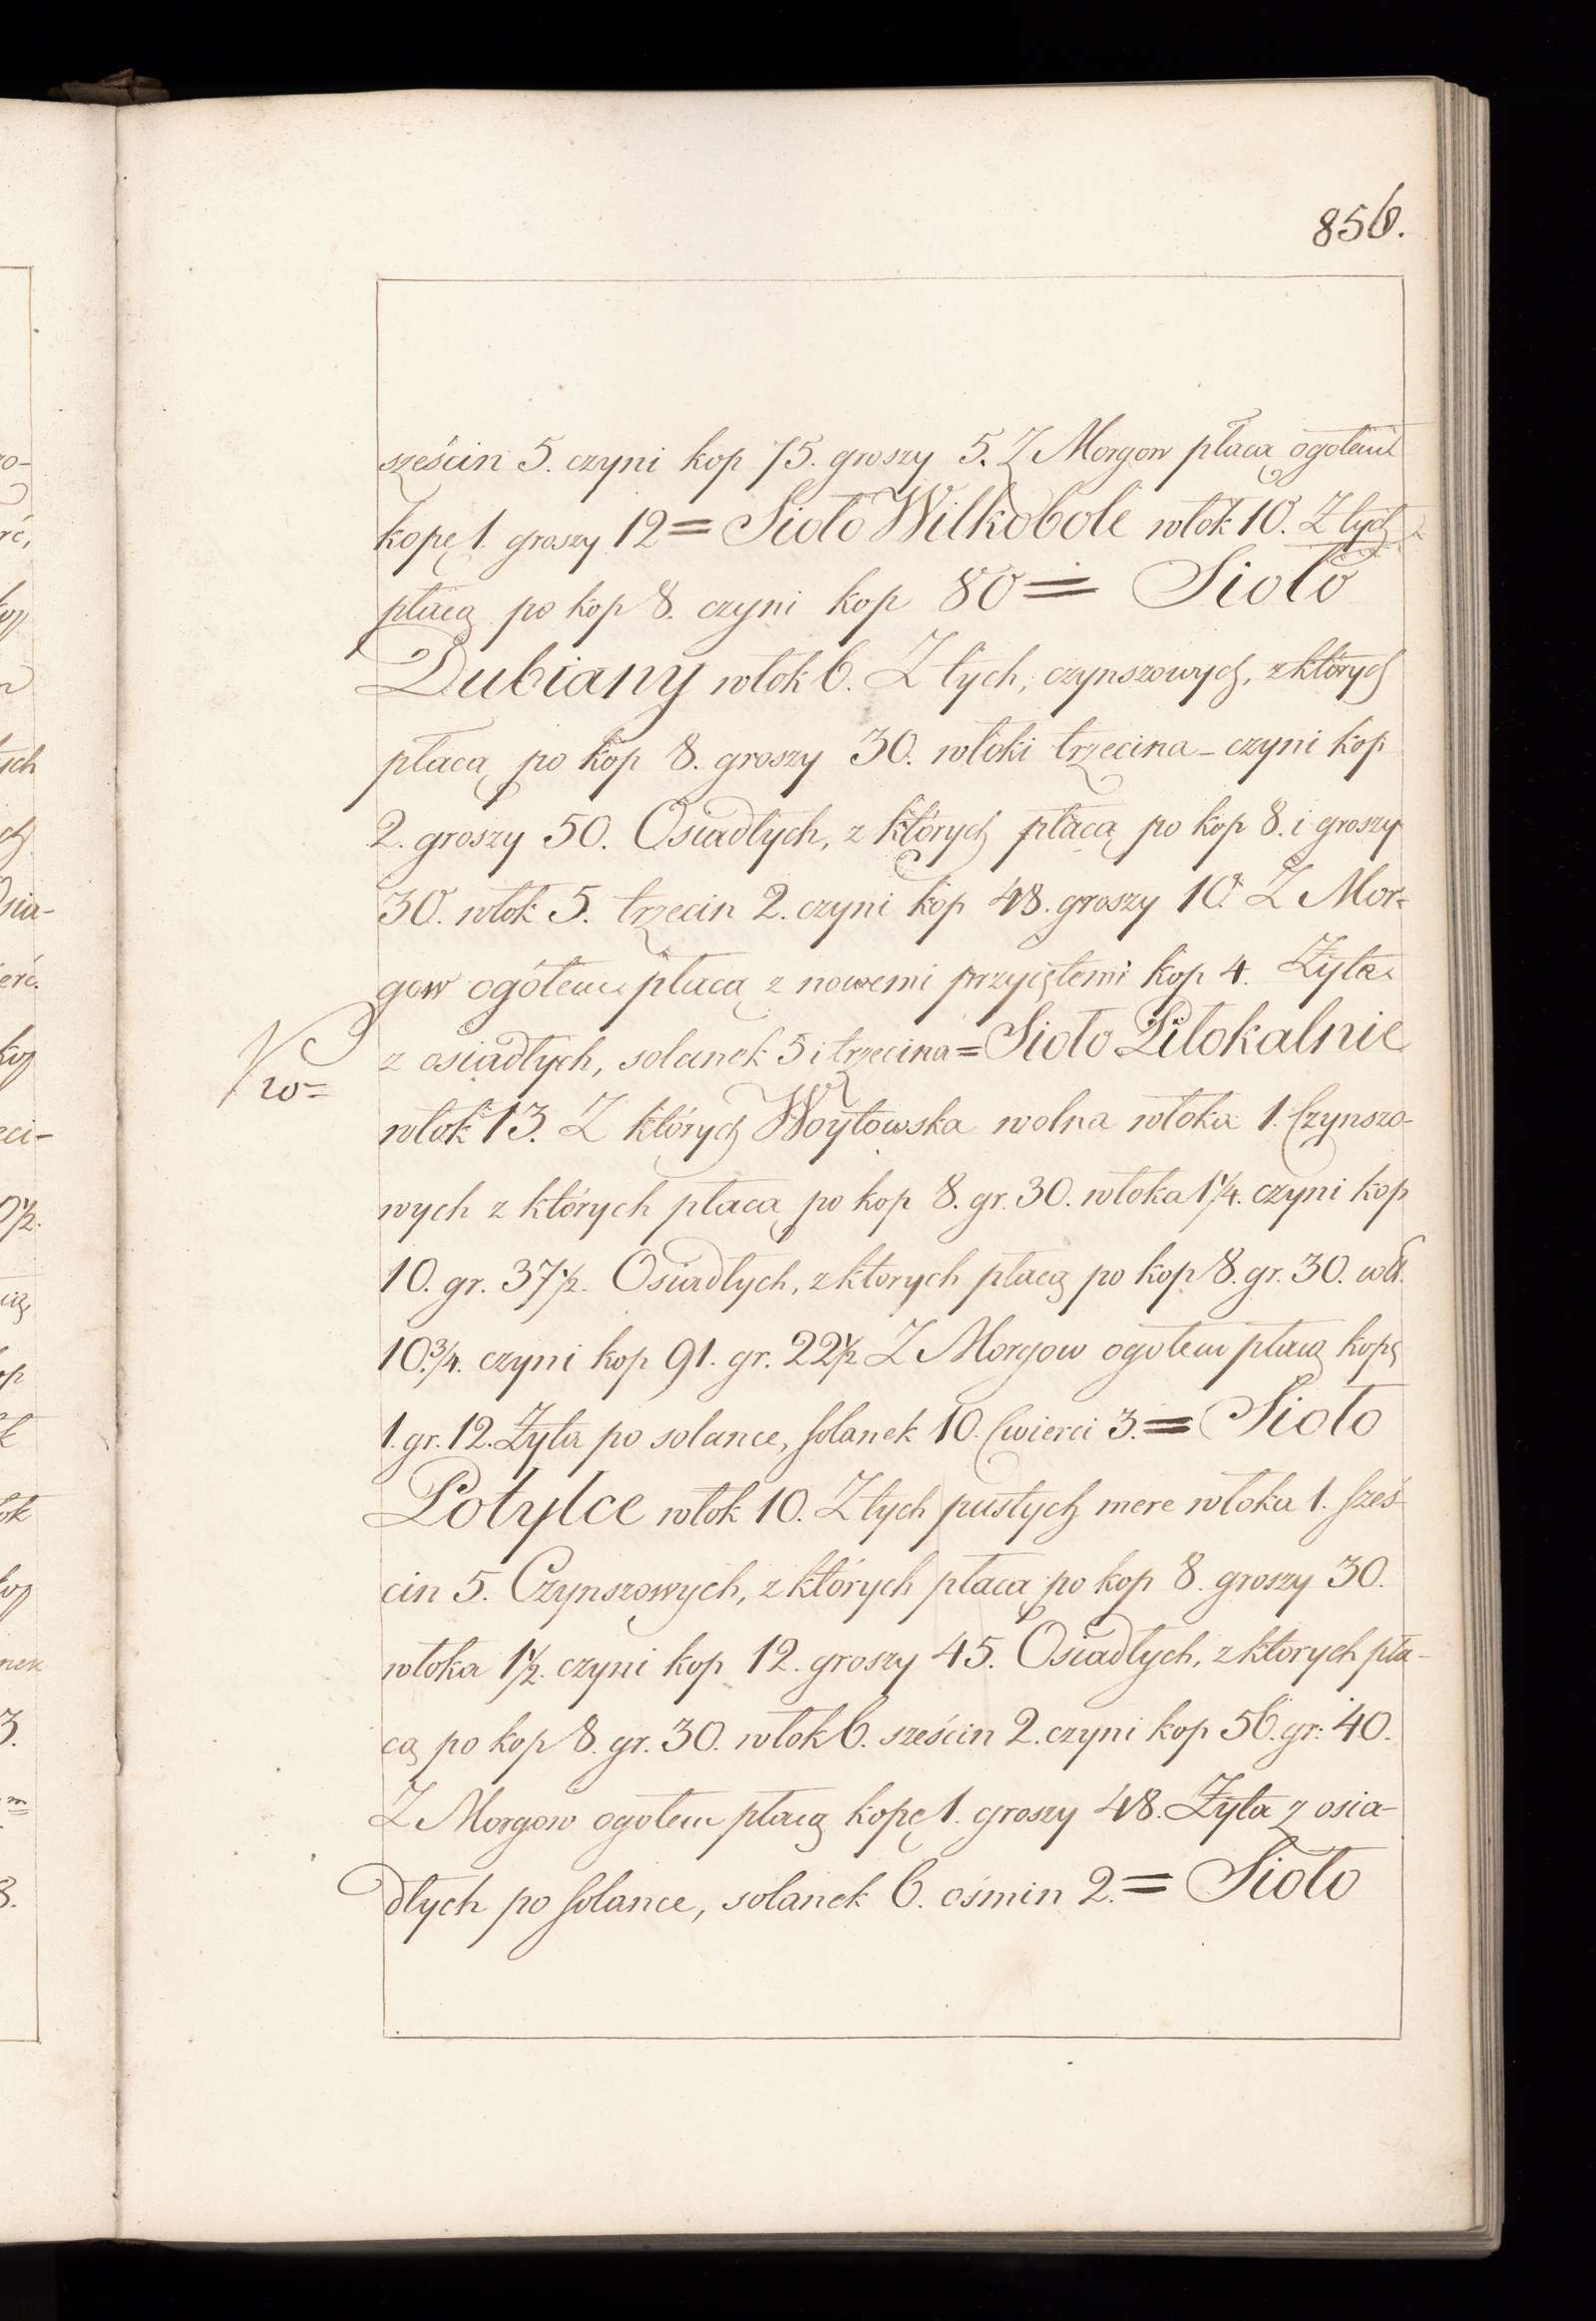 856.
sześcin 5. czyni kop 75. groszy 5. Z Morgow płacą ogołem
kopę 1. groszy 12 = Sioło Wilkobole włok 10. Z tych
płacą po kop 8. czyni kop 80 = Sioło
Dubiany włok 6. Z tych, czynszowych, z których
płacą po kop 8. groszy 30. włoki trzecina - czyni kop
2. groszy 50. Osiadłych, z których płacą po kop 8. i groszy
30. włok 5. trzecin 2. czyni kop 48. groszy 10. Z Mor-
gow ogółem płacą z nowemi przyiętemi kop 4. Żyta
z osiadłych, solanek 5 i trzecina = Sioło Piłokalnie
włok 13. Z których Woytowska wolna włoka 1. Czynszo-
wych z których płacą po kop 8. gr. 30. włoka 1 1/4. czyni kop
10. gr. 37 1/2. Osiadłych, z ktorych płacą po kop 8. gr. 30. wł.
10. 3/4. czyni kop 91. gr. 22 1/2 Z Morgow ogołem płacą kopę
1. gr. 12. Żyta po solance, solanek 10. Cwierci 3. = Sioło
Potylce włok 10. Z tych pustych mere włoka 1. sześ-
cin 5. Czynszowych, z których płacą po kop 8. groszy 30.
włoka 1 1/2. czyni kop 12. groszy 45. Osiadłych, z ktorych pła-
cą po kop 8. gr. 30. włok 6. sześcin 2. czyni kop 56. gr: 40.
Z Morgow ogołem płacą kopę 1. groszy 48. Żyta z osia-
dłych po solance, solanek 6. ośmin 2. = Sioło